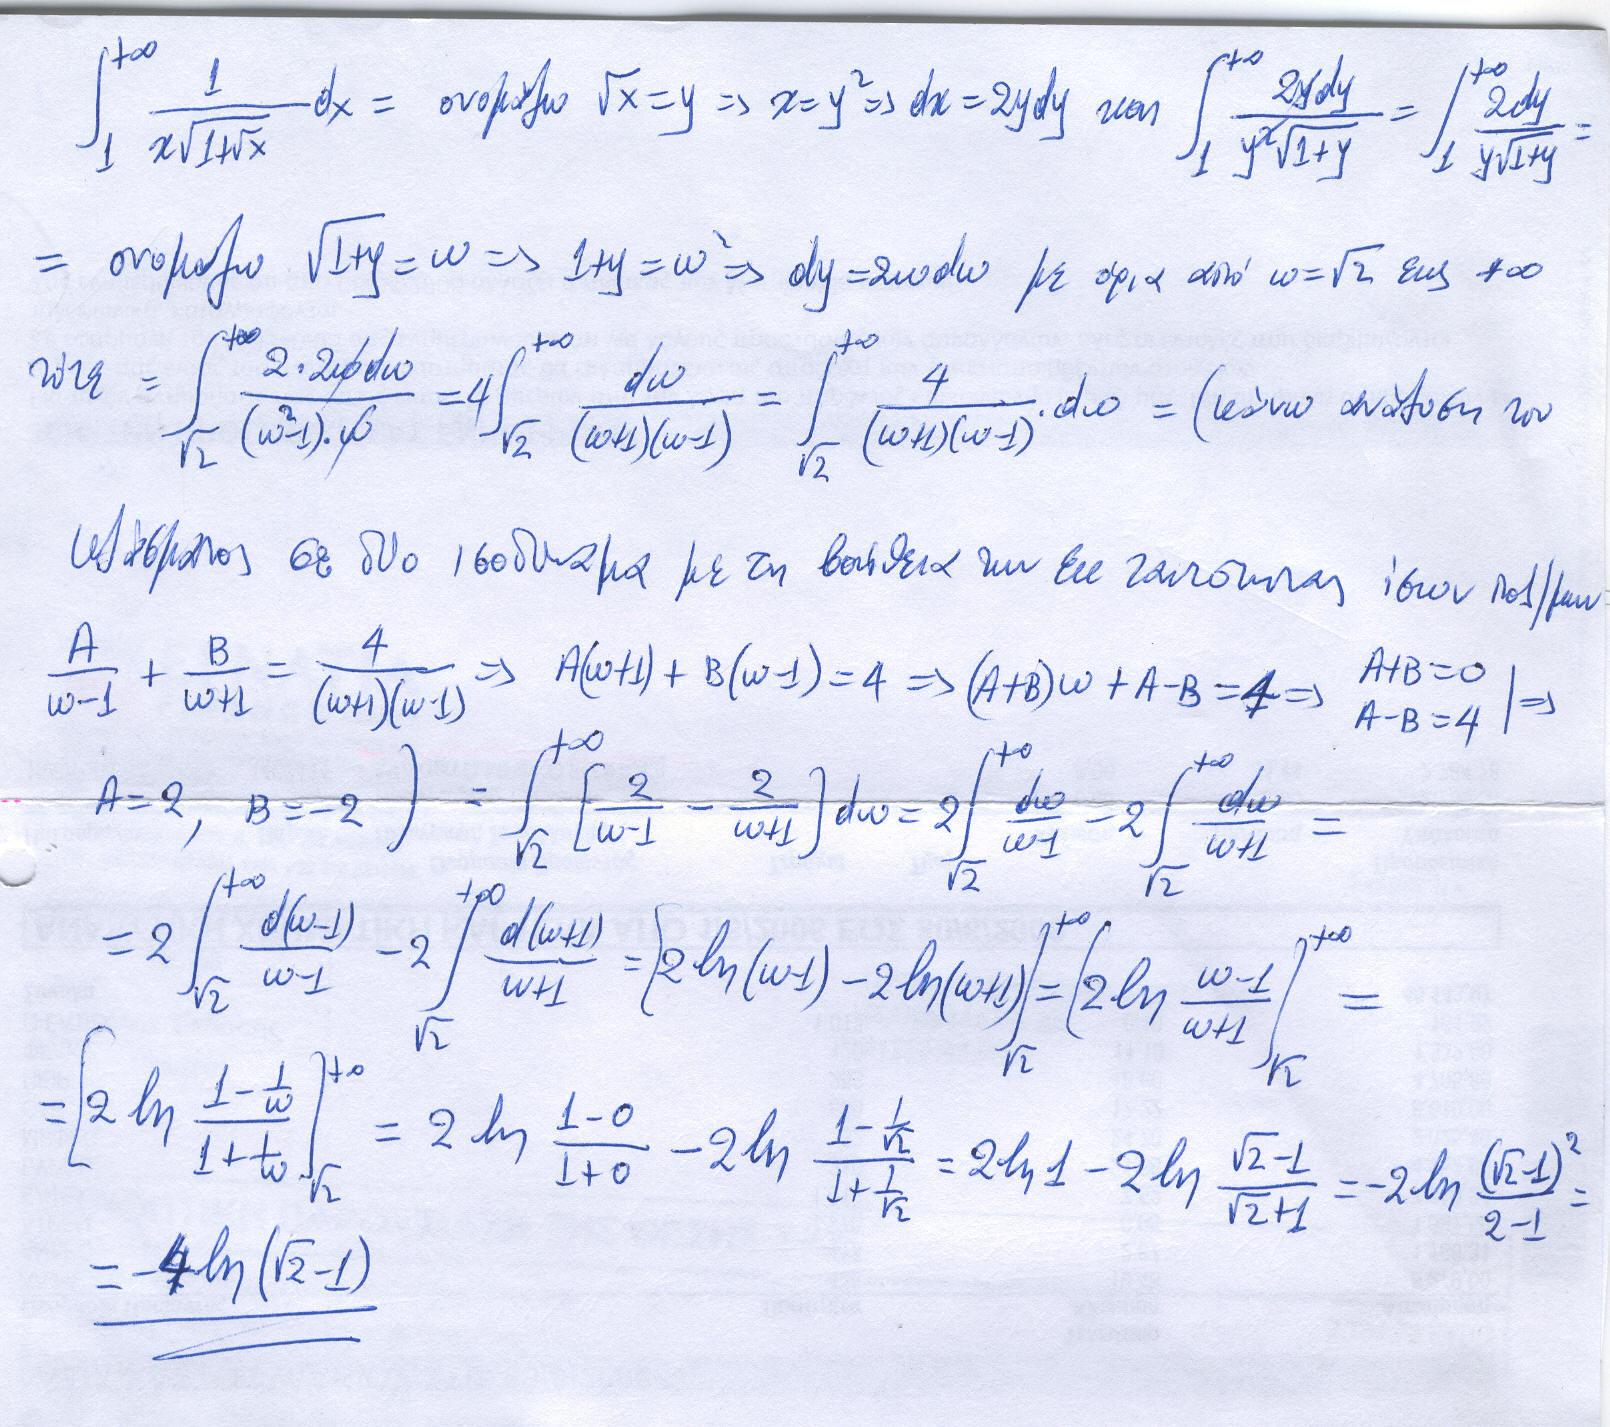 ∫₁^{+∞} 1/(x√(1+√x)) dx = ονομάζω √x = y ⇒ x = y² ⇒ dx = 2ydy και ∫₁^{+∞} 2ydy/(y²√(1+y)) = ∫₁^{+∞} 2dy/(y√(1+y)) =
= ονομάζω √(1+y) = w ⇒ 1+y = w² ⇒ dy = 2wdw με όρια από w = √2 εως +∞
τότε = ∫_{√2}^{+∞} 2·2wdw/((w²-1)·w) = 4∫_{√2}^{+∞} dw/((w+1)(w-1)) = ∫_{√2}^{+∞} 4/((w+1)(w-1)) · dw = (κάνω ανάλυση του
κλάσματος σε δυο ισοδύναμα με τη βοήθεια των εκ ταυτότητας ίσων πολ/μων
A/(w-1) + B/(w+1) = 4/((w+1)(w-1)) ⇒ A(w+1) + B(w-1) = 4 ⇒ (A+B)w + A-B = 4 ⇒ A+B=0 A-B=4 | ⇒
A=2, B=-2 ) = ∫_{√2}^{+∞} [2/(w-1) - 2/(w+1)] dw = 2∫_{√2}^{+∞} dw/(w-1) - 2∫_{√2}^{+∞} dw/(w+1) =
= 2∫_{√2}^{+∞} d(w-1)/(w-1) - 2∫_{√2}^{+∞} d(w+1)/(w+1) = [2ln(w-1) - 2ln(w+1)]_{√2}^{+∞} = [2ln (w-1)/(w+1)]_{√2}^{+∞} =
= [2ln (1-1/w)/(1+1/w)]_{√2}^{+∞} = 2ln (1-0)/(1+0) - 2ln (1-1/√2)/(1+1/√2) = 2ln1 - 2ln (√2-1)/(√2+1) = -2ln (√2-1)²/(2-1) =
= -4ln(√2-1)